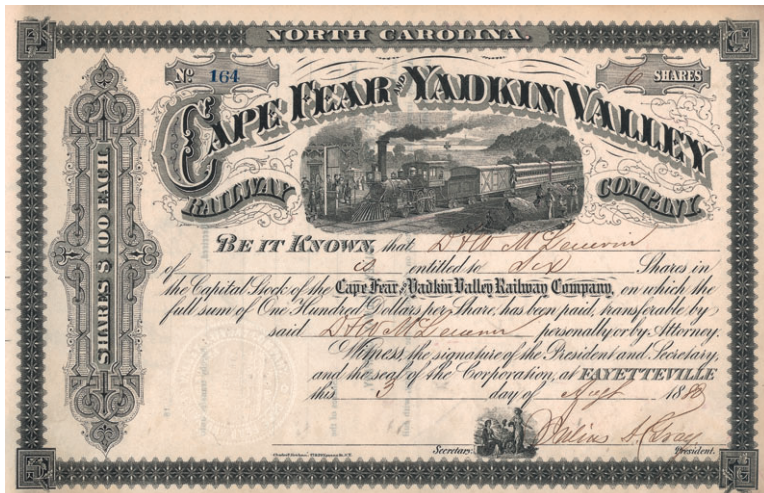 NORTH CAROLINA.
No. 164
6 SHARES
CAPE FEAR AND YADKIN VALLEY
RAILWAY COMPANY
SHARES $100 EACH
BE IT KNOWN, that D & W McLaurin
of is entitled to Six Shares in
the Capital Stock of the Cape Fear and Yadkin Valley Railway Company, on which the
full sum of One Hundred Dollars per Share, has been paid, transferable by
said D & W McLaurin personally or by Attorney.
Witness, the signature of the President and Secretary,
and the seal of the Corporation, at FAYETTEVILLE
this 3 day of Augt 1883
Julius A. Gray
Secretary. President.